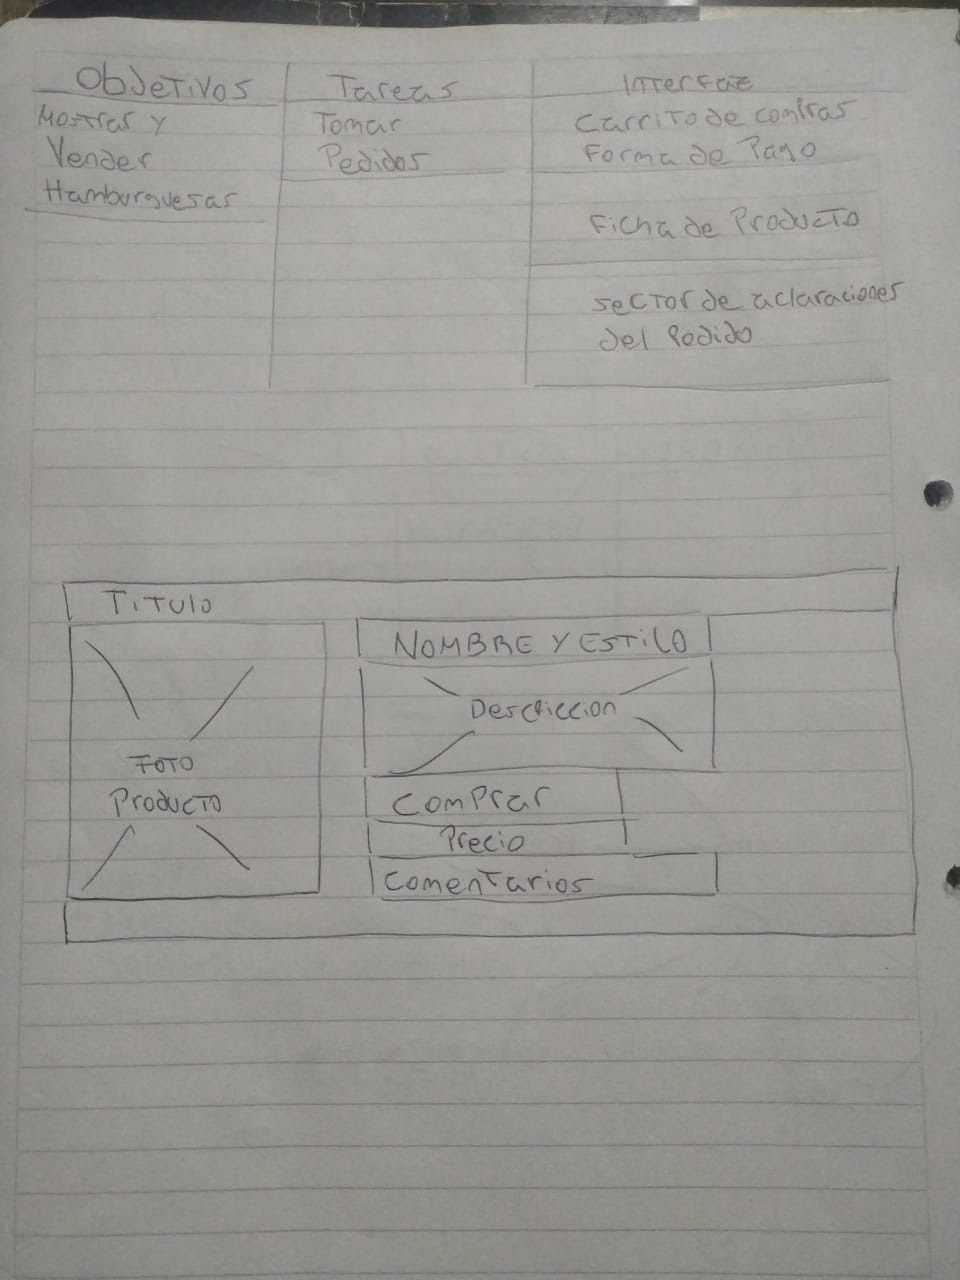 Objetivos
Tareas
Interfaz
Mostrar y
Vender
Hamburguesas
Tomar
Pedidos
Carrito de compras
Forma de Pago
Ficha de Producto
sector de aclaraciones
del Pedido
TiTULO
FOTO
Producto
NOMBRE Y ESTiLO
Descriccion
ComPrar
Precio
Comentarios